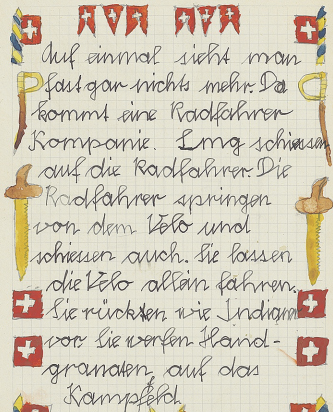 Auf einmal sieht man
fast gar nichts mehr. Da
kommt eine Radfahrer
Kompanie. Lmg schiessen
auf die Radfahrer. Die
Radfahrer springen
von dem Velo und
schiessen auch. Sie lassen
die Velo allein fahren.
Sie rückten wie Indianer
vor. Sie werfen Hand-
granaten, auf das
Kampffeld